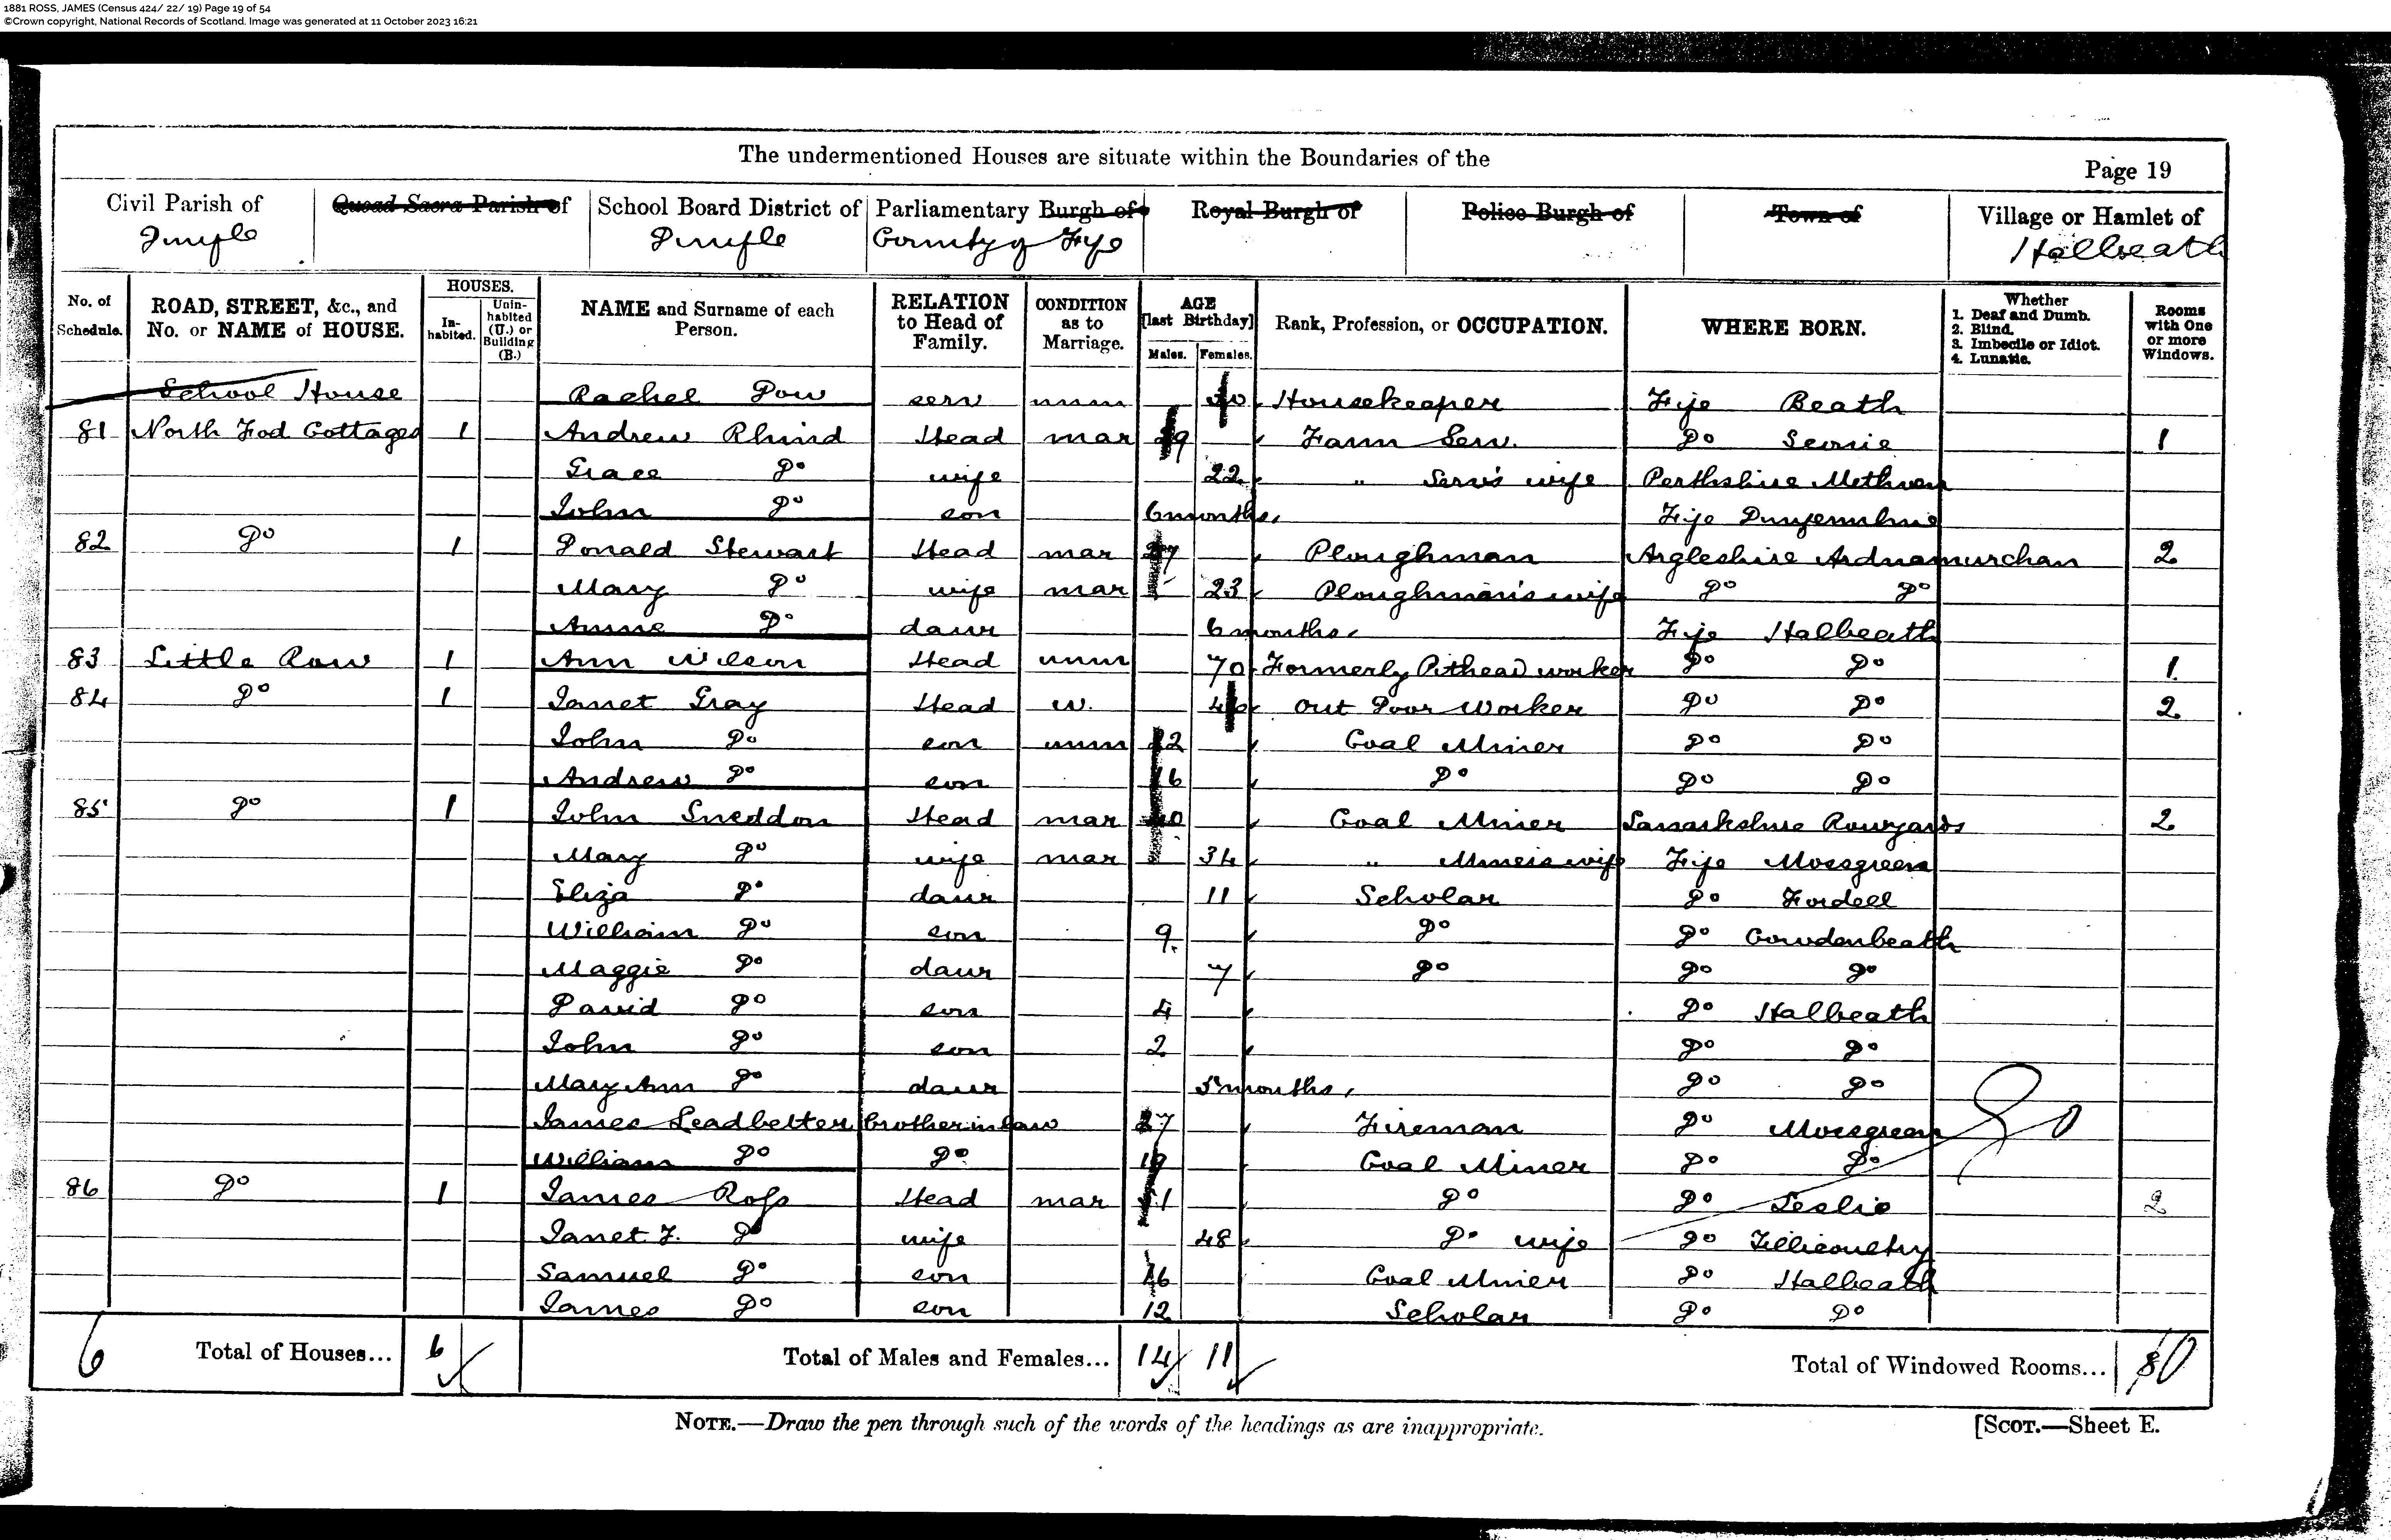 1881 ROSS, JAMES (Census 424/ 22/ 19) Page 19 of 54
©Crown copyright, National Records of Scotland. Image was generated at 11 October 2023 16:21
The undermentioned Houses are situate within the Boundaries of the
Page 19
Civil Parish of Quoad Sacra Parish of School Board District of Parliamentary Burgh of Royal Burgh of Police Burgh of Town of Village or Hamlet of
County of Fife Halbeath
No. of Schedule. ROAD, STREET, &c., and No. or NAME of HOUSE. HOUSES. Inhabited. Uninhabited (U.) or Building (B.) NAME and Surname of each Person. RELATION to Head of Family. CONDITION as to Marriage. AGE [last Birthday] Males. Females. Rank, Profession, or OCCUPATION. WHERE BORN. Whether 1. Deaf and Dumb. 2. Blind. 3. Imbecile or Idiot. 4. Lunatic. Rooms with One or more Windows.
School House Rachel Dow serv unm Housekeeper Fife Beath
81 North Fod Cottages 1 Andrew Rhind Head mar 29 Farm Serv. Do Sconie 1
Grace Do wife 22 " Serv's wife Perthshire Methven
John Do son 6 months Fife Dunfermline
82 Do 1 Donald Stewart Head mar 27 Ploughman Argleshire Ardnamurchan 2
Mary Do wife mar 23 Ploughman's wife Do Do
Annie Do daur 6 months Fife Halbeath
83 Little Row 1 Ann Wilson Head unm 70 Formerly Pithead worker Do Do 1
84 Do 1 Janet Gray Head w. Out Door Worker Do Do 2
John Do son unm 22 Coal Miner Do Do
Andrew Do son 16 Do Do Do
85 Do 1 John Sneddon Head mar 40 Coal Miner Lanarkshire Rawyards 2
Mary Do wife mar 34 " Miners wife Fife Mossgreen
Eliza Do daur 11 Scholar Do Fordell
William Do son 9 Do Do Cowdenbeath
Maggie Do daur 7 Do Do Do
David Do son 4 Do Halbeath
John Do son 2 Do Do
Mary Ann Do daur 5 months Do Do
James Leadbetter brother in law 27 Fireman Do Mossgreen
William Do Do 19 Coal Miner Do Do
86 Do 1 James Ross Head mar 51 Do Do Leslie 2
Janet F. Do wife 48 Do wife Do Tillicoultry
Samuel Do son 16 Coal Miner Do Halbeath
James Do son 12 Scholar Do Do
6 Total of Houses... 6 Total of Males and Females... 14 11 Total of Windowed Rooms...
NOTE.—Draw the pen through such of the words of the headings as are inappropriate.
[SCOT.—Sheet E.